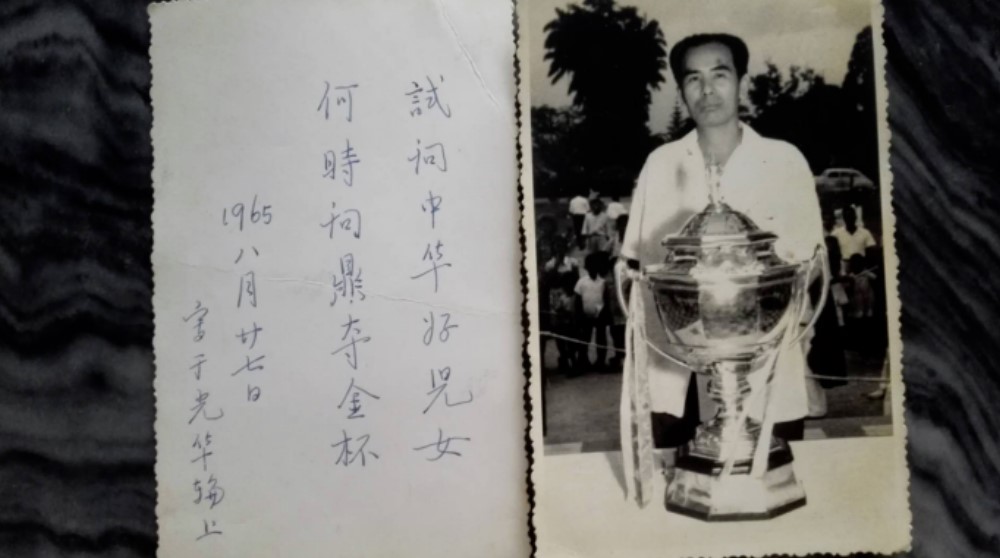 試问中华好児女
何時问鼎夺金杯
1965
八月廿七日
写于光华輪上